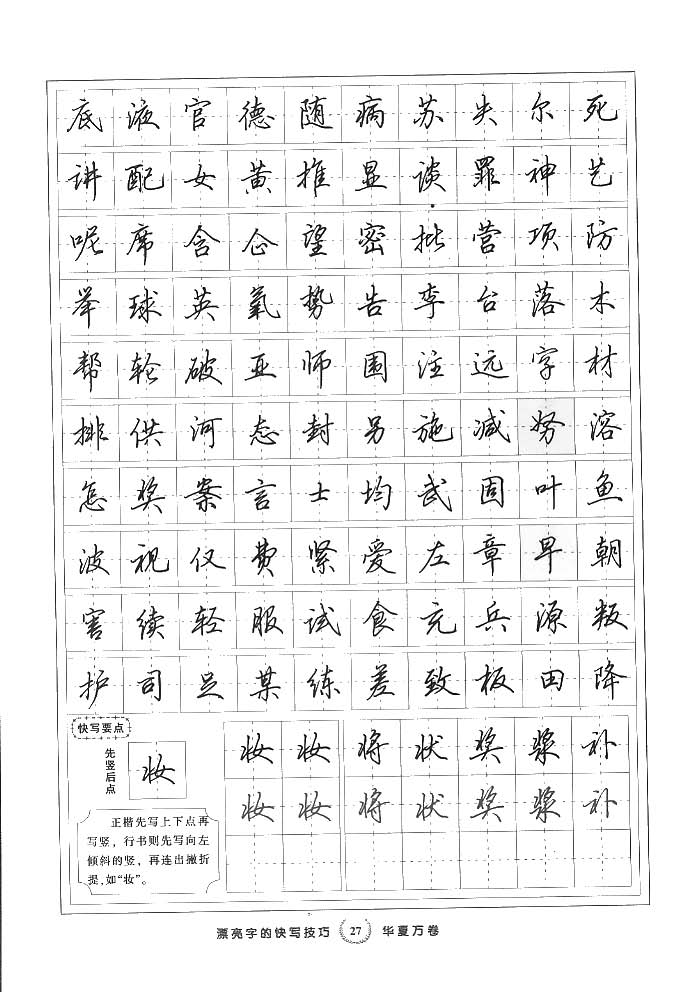 底液官德随病苏失尔死
讲配女黄推显谈罪神艺
呢席含企望密批营项防
举球英氧势告李台落木
帮轮破亚师围注远字材
排供河态封另施减努溶
怎奖案言士均武固叶鱼
波视仅费紧爱左章早朝
害续轻服试食充兵源叛
护司足某练差致板田降
快写要点
先竖后点
妆
正楷先写上下点再
写竖，行书则先写向左
倾斜的竖，再连出撇折
提，如“妆”。
妆妆将状奖浆补
妆妆将状奖浆补
漂亮字的快写技巧 27 华夏万卷